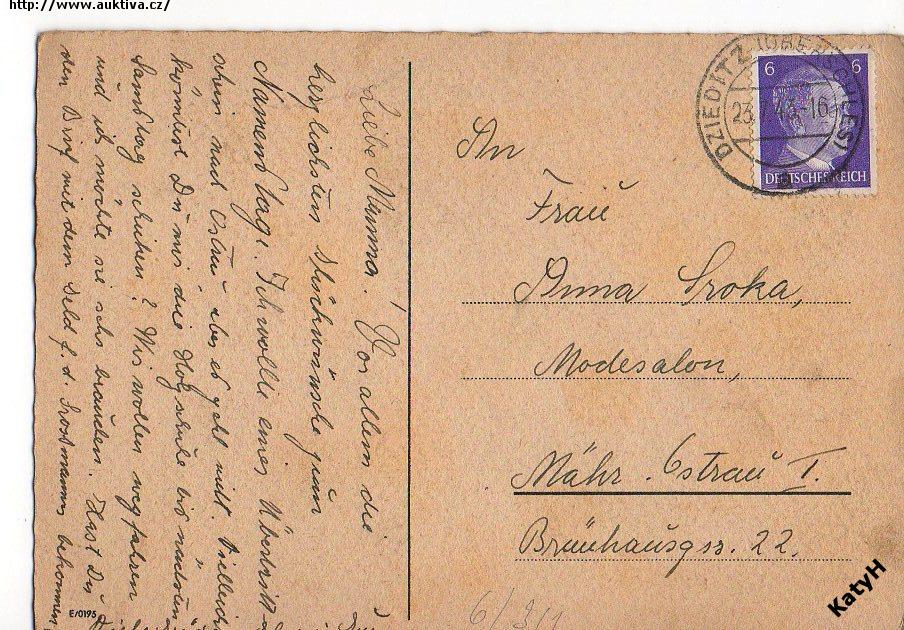 http://www.auktiva.cz/
Liebe Mamma! Vor allem die
herzlichsten Glückwünsche zum
Namenstag! Ich wollte einen
schon nach Ostrau aber es geht nicht. Vielleicht
könntest Du mir die bis nächsten
Samstag schicken? Wir wollen wegfahren
und ich möchte sie sehr brauchen. Hast Du
den Brief mit dem Geld f. d. bekommen
E/0195
DZIEDITZ (OBERSCHLES)
23. 43-16
6 6
DEUTSCHES REICH
An
Frau
Anna Sroka,
Modesalon,
Mähr. Ostrau I.
Bräuhausgs. 22.
6/3/1
KatyH